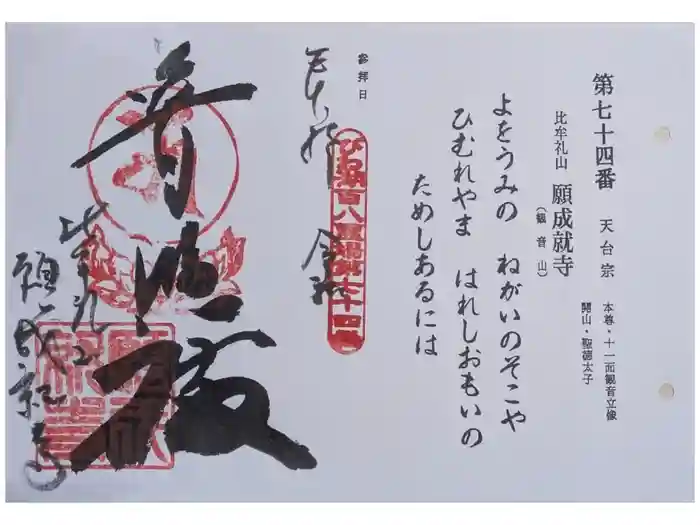 第七十四番 天台宗
本尊・十一面観音立像
開山・聖徳太子
比牟礼山 願成就寺
(観音山)
よをうみの ねがいのそこや
ひむれやま はれしおもいの
ためしあるには
参拝日
奉拝
びわ湖百八霊場第七十四番
比牟礼山
願成就寺